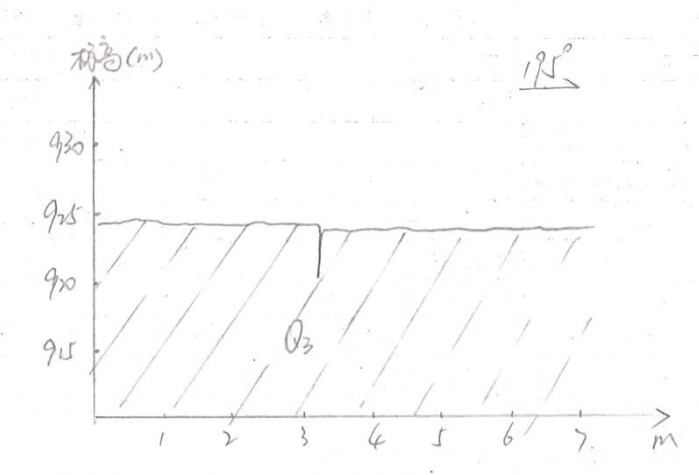 标高(m)
195°
930
925
920
915
Q3
1 2 3 4 5 6 7 m